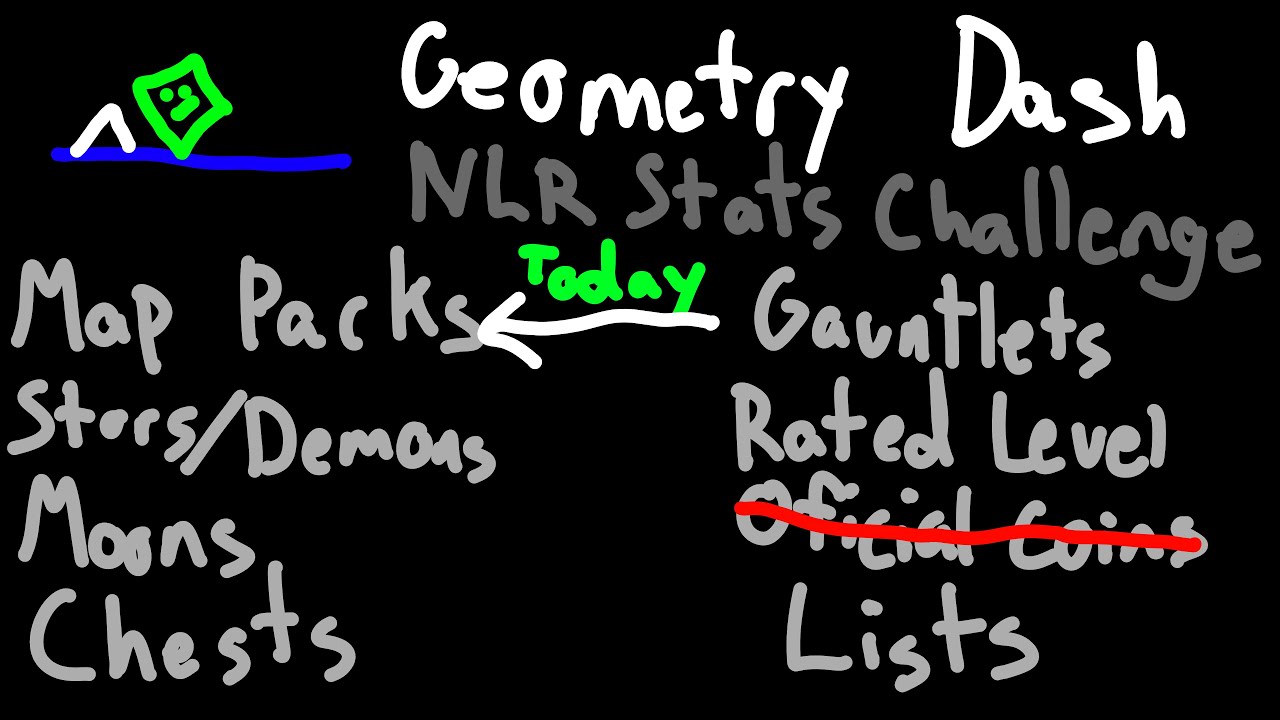 Geometry Dash
NLR Stats Challenge
Today
Map Packs
Gauntlets
Stars/Demons
Rated Level
Moons
Oficial Coins
Chests
Lists